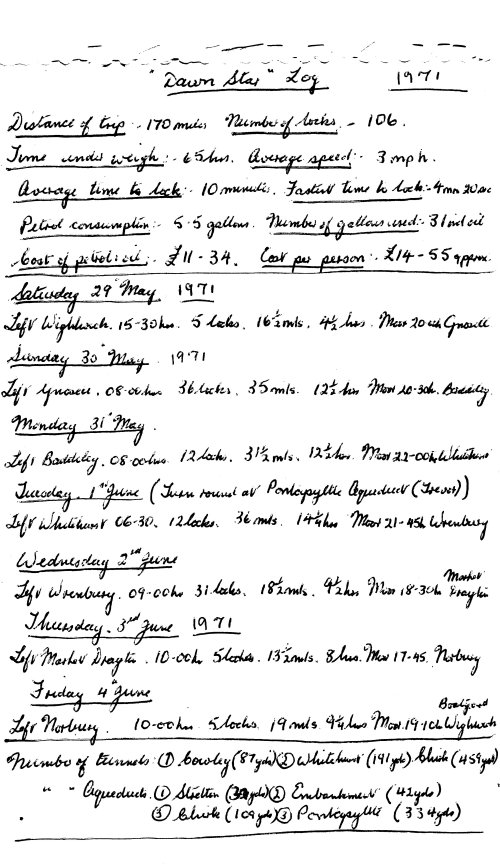 "Dawn Star" Log 1971
Distance of trip :- 170 miles Number of locks. - 106.
Time under weigh :- 65 hrs. Average speed :- 3 mph.
Average time to lock :- 10 minutes. Fastest time to lock :- 4mn 20 sec
Petrol consumption :- 5.5 gallons. Number of gallons used :- 31 ind oil
Cost of petrol : oil :- £11 - 34. Cost per person :- £14 - 55 approx.
Saturday 29th May 1971
Left Wightwick. 15-30 hrs. 5 locks. 16½ mls. 4½ hrs. Moor 20-00h Gnosall
Sunday 30th May. 1971
Left Gnosall. 08-00 hrs 36 locks. 35 mls. 12½ hrs Moor 20-30h. Baddiley
Monday 31st May.
Left Baddiley. 08-00 hrs. 12 locks. 31½ mls. 12½ hrs. Moor 22-00h Whitehurst
Tuesday. 1st June (Turn round at Pontcpyllte Aqueduct (Trevor))
Left Whitehurst 06-30. 12 locks. 36 mls. 14¼ hrs Moor 21-45h Wrenbury
Wednesday 2nd June
Left Wrenbury. 09-00 hr 31 locks. 18½ mls. 9½ hrs Moor 18-30h Market Drayton
Thursday. 3rd June 1971
Left Market Drayton. 10-00h 5 locks. 13½ mls. 8 hrs. Moor 17-45. Norbury
Friday 4th June
Left Norbury. 10-00 hrs 5 locks. 19 mls. 9¼ hrs Moor. 19-10h Wightwick Boatyard
Number of tunnels (1) Cowley (87 yds) (2) Whitehurst (191 yds). Chirk (459 yds)
" " Aqueducts. (1) Stretton ( yds) (2) Embankment (42 yds)
(3) Chirk (109 yds) (3) Pontcpyllte (334 yds)